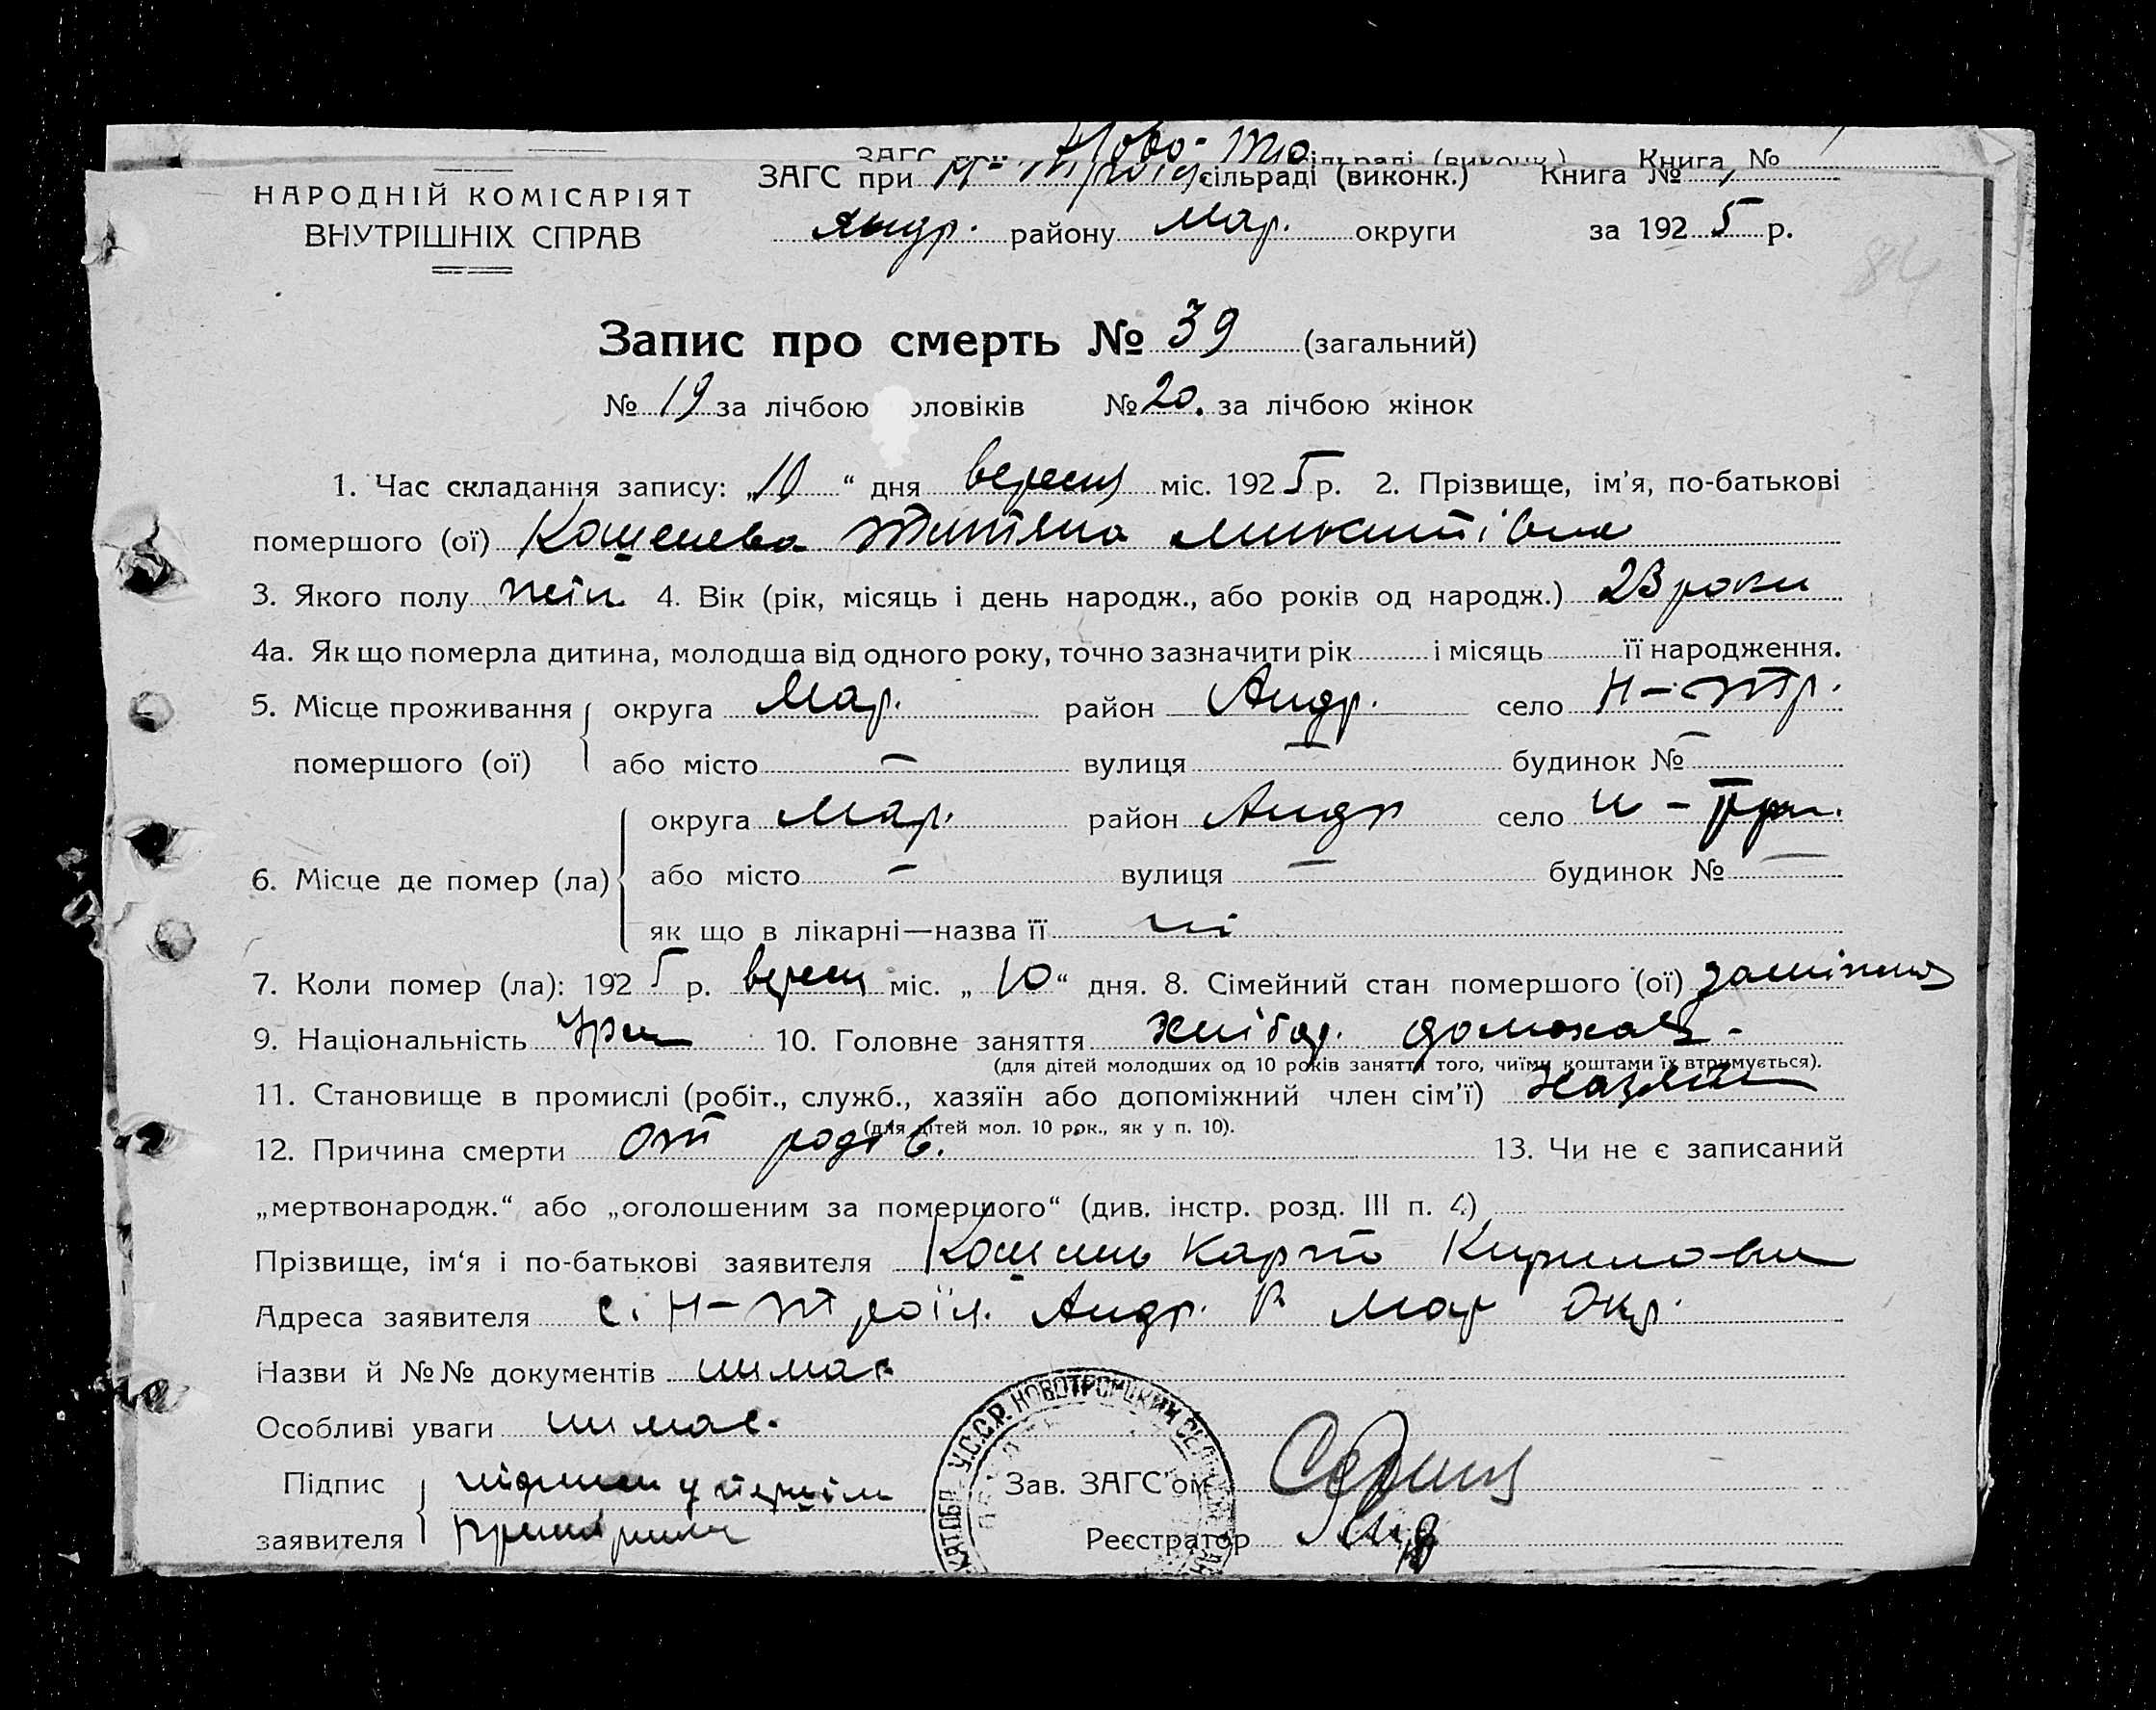 Ново-Тро
ЗАГС при Н-Троїц сільраді (виконк.) Книга №
НАРОДНІЙ КОМІСАРІЯТ
ВНУТРІШНІХ СПРАВ
Андр. району Мар. округи за 1925 р.
84
Запис про смерть № 39 (загальний)
№ 19 за лічбою оловіків № 20. за лічбою жінок
1. Час складання запису: „10“ дня вересня міс. 1925 р. 2. Прізвище, ім'я, по-батькові
помершого (ої) Кошелева Титяна Микитівна
3. Якого полу жін 4. Вік (рік, місяць і день народж., або років од народж.) 23 роки
4а. Як що померла дитина, молодша від одного року, точно зазначити рік і місяць її народження.
5. Місце проживання округа Мар. район Андр. село Н-Тр.
помершого (ої) або місто — вулиця — будинок № —
округа Мар. район Андр село Н-Тр.
6. Місце де помер (ла) або місто — вулиця — будинок № —
як що в лікарні—назва її ні
7. Коли помер (ла): 1925 р. вересн міс. „10“ дня. 8. Сімейний стан помершого (ої) заміжня
9. Національність Укр 10. Головне заняття хлібор. домохаз-
(для дітей молодших од 10 років заняття того, чиїми коштами їх втримується).
11. Становище в промислі (робіт., служб., хазяїн або допоміжний член сім'ї) хазяїн
(для дітей мол. 10 рок., як у п. 10).
12. Причина смерти От родів. 13. Чи не є записаний
„мертвонародж.“ або „оголошеним за помершого“ (див. інстр. розд. III п. 4)
Прізвище, ім'я і по-батькові заявителя Карпо Кирилови
Адреса заявителя с. Н-Троїц. Андр. Р Мар Окр.
Назви й №№ документів нимає
Особливі уваги нимає.
Підпис підпис у першім
заявителя примірнику
У.С.С.Р. НОВОТРОИЦКИЙ
Зав. ЗАГС'ом
Реєстратор